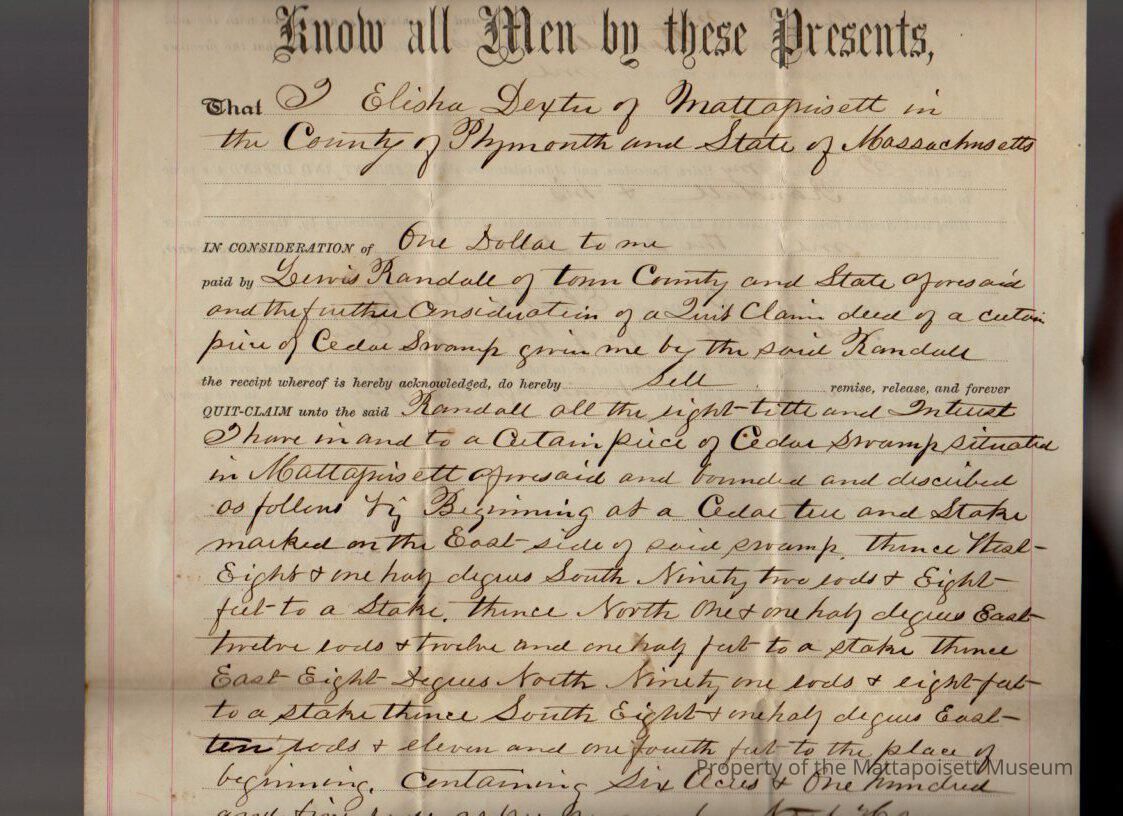 Know all Men by these Presents,
That I Elisha Dexter of Mattapoisett in
the County of Plymouth and State of Massachusetts
IN CONSIDERATION of One Dollar to me
paid by Lewis Randall of town County and State aforesaid
and the further Consideration of a Quit Claim deed of a certain
piece of Cedar Swamp given me by the said Randall
the receipt whereof is hereby acknowledged, do hereby Sell remise, release, and forever
QUIT-CLAIM unto the said Randall all the right title and Interest
I have in and to a Certain piece of Cedar Swamp situated
in Mattapoisett aforesaid and bounded and described
as follows Viz Beginning at a Cedar tree and Stake
marked on the East side of said swamp, thence West
Eight & one half degrees South Ninety two rods & Eight
feet to a Stake, thence North One & one half degrees East
twelve rods & twelve and one half feet to a stake thence
East Eight Degrees North Ninety one rods & eight feet
to a stake thence South Eight & one half degrees East
ten rods & eleven and one fourth feet to the place of
beginning, Containing Six Acres & One hundred
Property of the Mattapoisett Museum